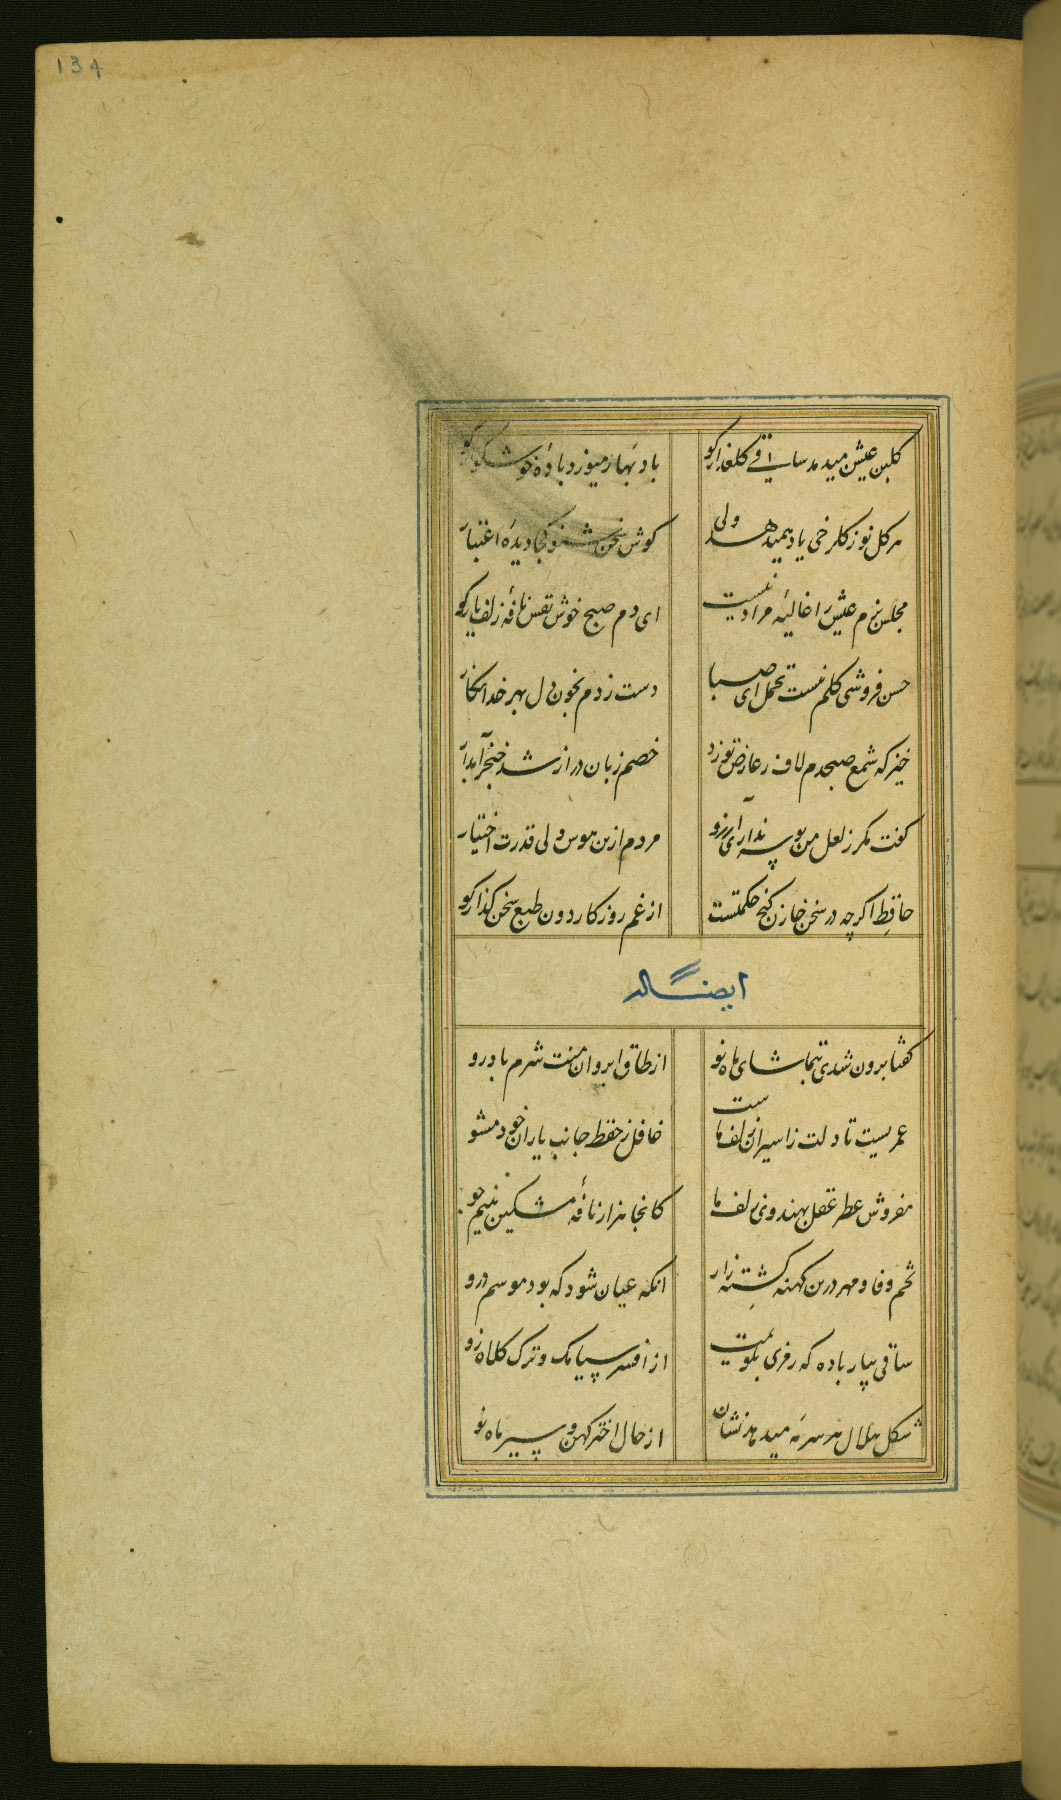 134
کلبن عیش میدمد ساقی کلعذار کو
باد بهار میوزد بادهٔ خوشکوار کو
هر کل نو ز کلرخی یاد همیدهد ولی
کوش سخن شنو کجا دیدهٔ اعتبار
مجلس بزم عیش را غالیهٔ مراد نیست
ای دم صبح خوش نفس نافهٔ زلف یار کو
حسن فروشی کلم نیست تحمل ای صبا
دست زدم بخون دل بهر خدا نکار
خیز که شمع صبحدم لاف ز عارض تو زد
خصم زبان دراز شد خنجر آبدار
کفت مکر ز لعل من بوسه نداری آرزو
مردم ازین هوس ولی قدرت اختیار
حافظ اکرچه در سخن خازن کنج حکمتست
از غم روزکار دون طبع سخن کذار کو
ایضاً له
کفتا برون شدی بتماشای ماه نو
از طاق ابروان منت شرم باد رو
عمریست تا دلت ز اسیران زلف ماست
غافل ز حفظ جانب یاران خود مشو
مفروش عطر عقل بهندوی زلف ما
کانجا هزار نافهٔ مشکین بنیم جو
تخم وفا و مهر درین کهنه کشته زار
انکه عیان شود که بود موسم درو
ساقی بیار باده که رمزی بکویمت
از افسر سیامک و ترک کلاه زو
شکل هلال هر سر مه میدهد نشان
از حال اختر کهن و سیر ماه نو